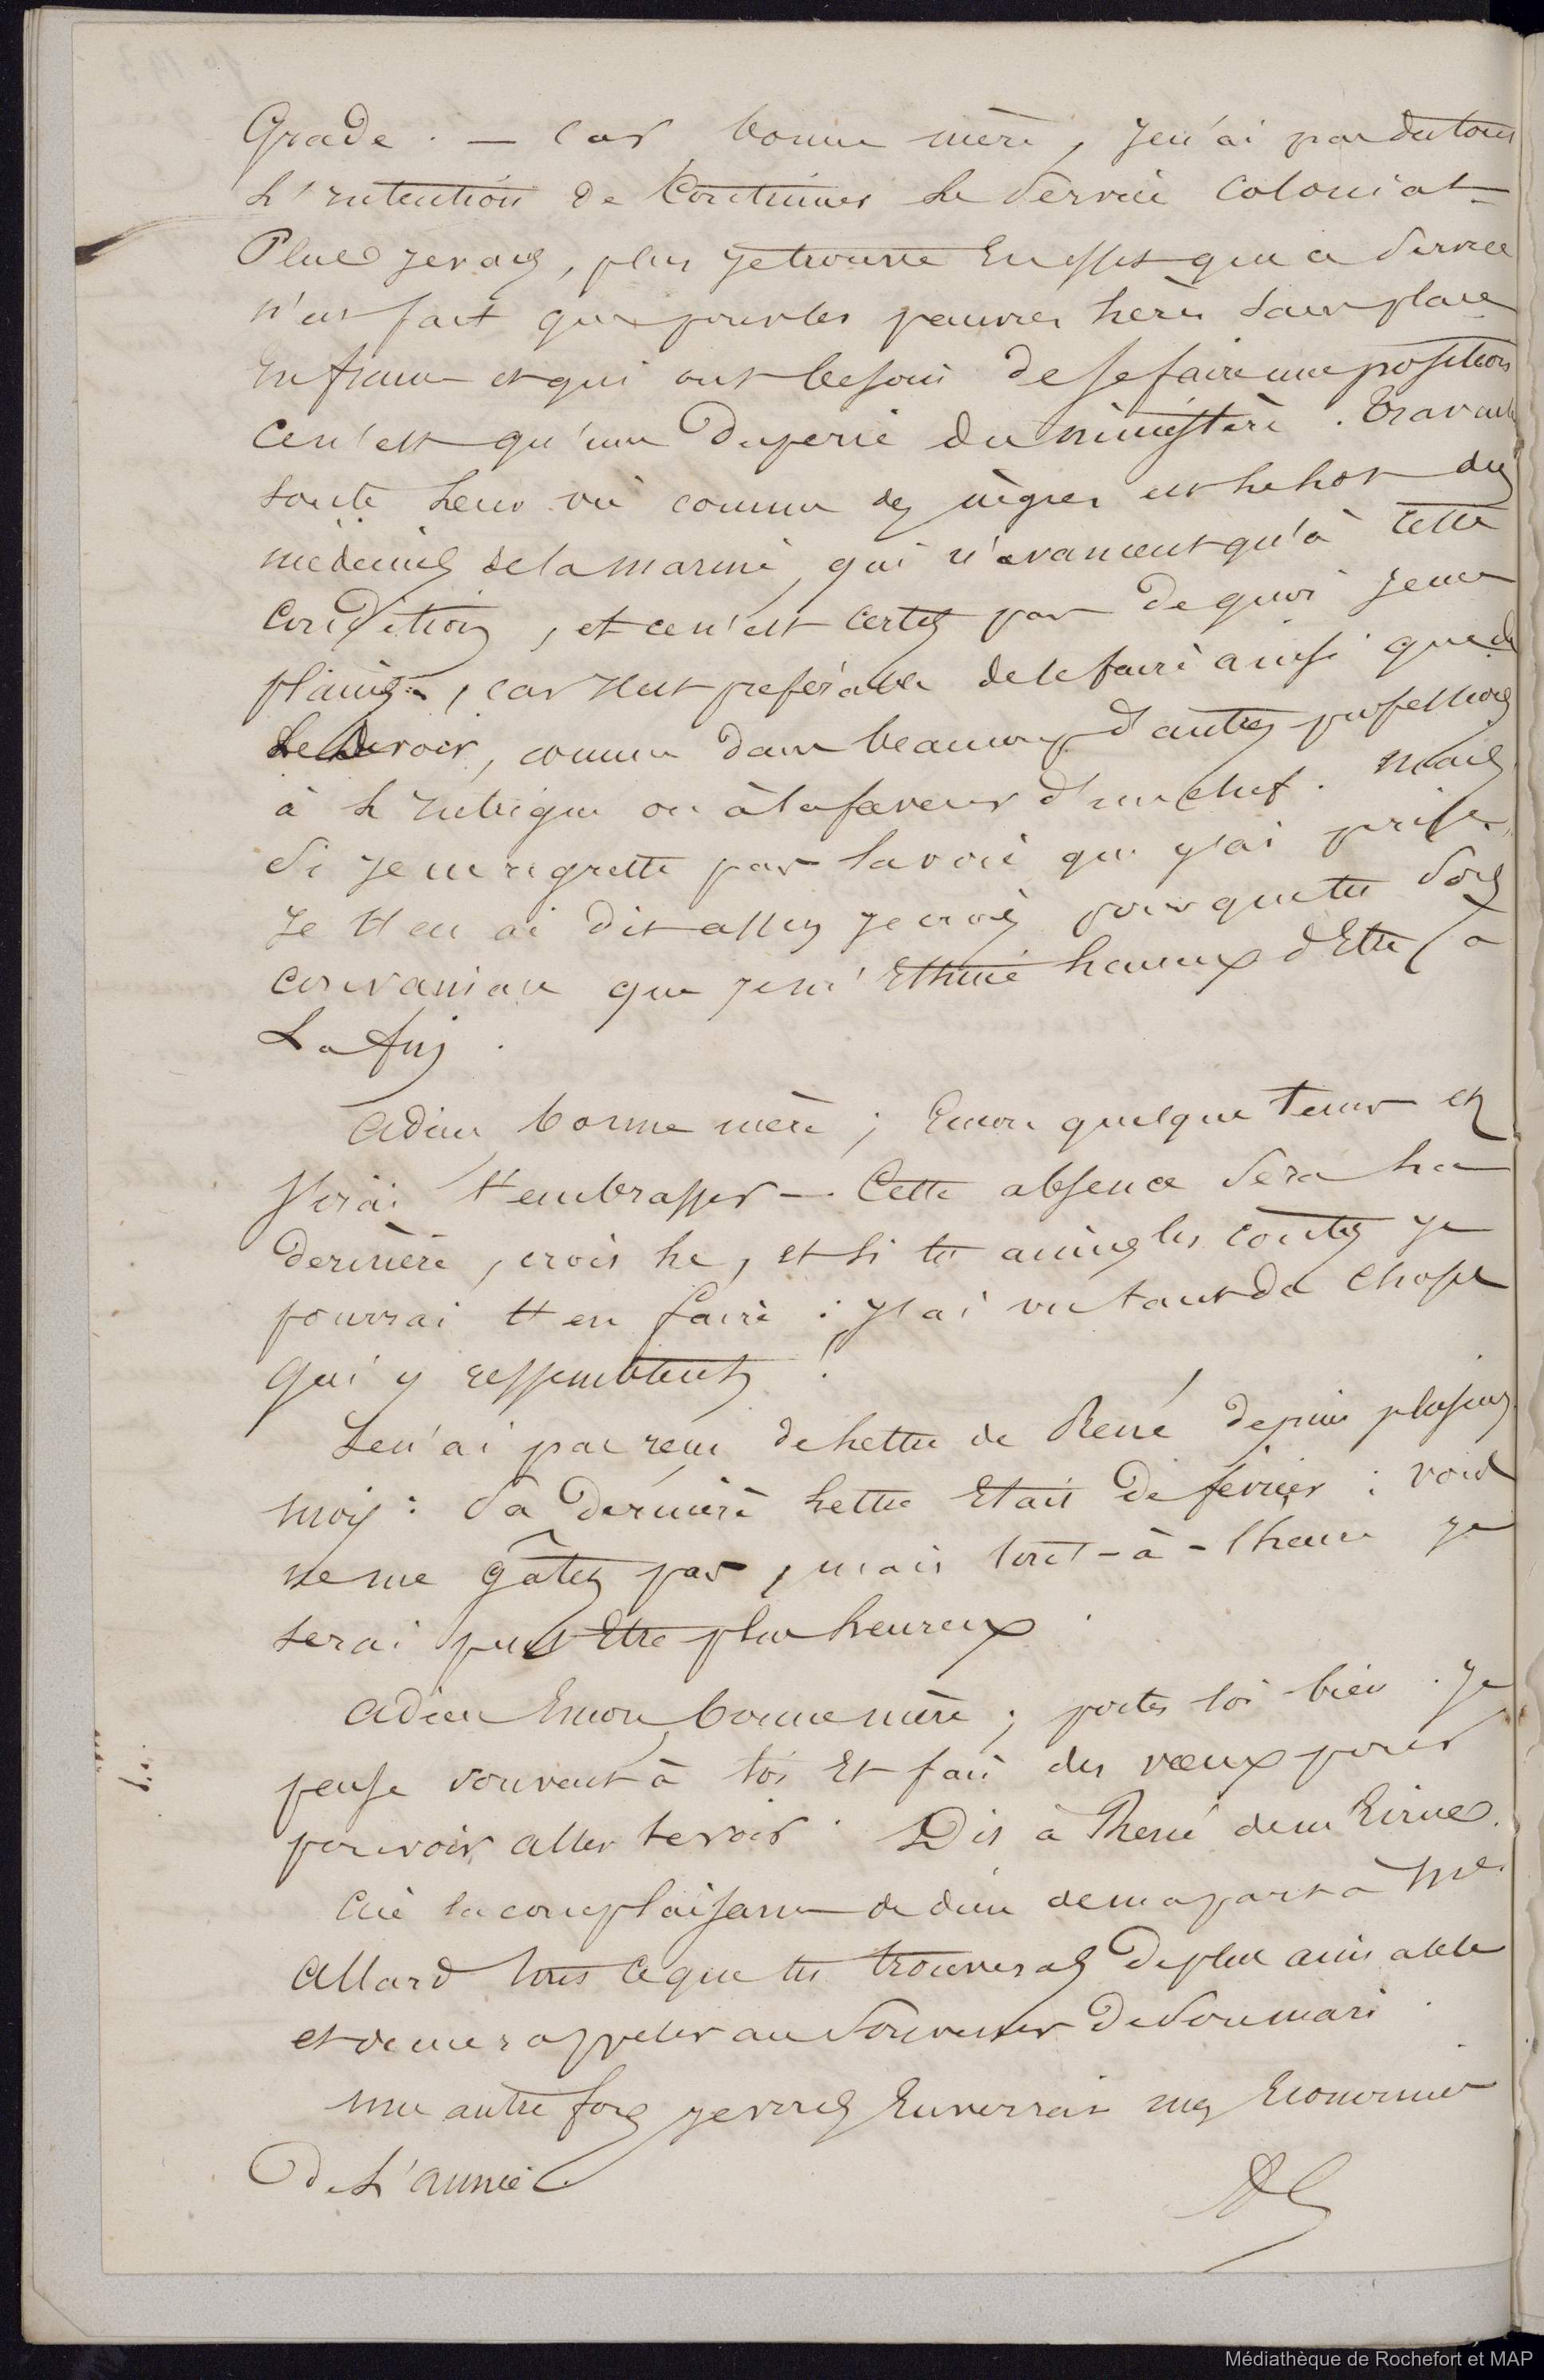 Grade. — Car bonne mère, je n'ai pas du tout
l'intention de continuer le service colonial
Plus je vais, plus je trouve en effet que ce service
n'est fait que pour les pauvres hères sans place
en france et qui ont besoin de se faire une position
ce n'est qu'une duperie du ministère. Travailler
toute leur vie comme des nègres est le lot des
médecins de la marine, qui n'avancent qu'à cette
condition, et ce n'est certes pas de quoi je me
plains, car il est préférable de le faire ainsi que de
le devoir, comme dans beaucoup d'autres professions
à l'intrigue ou à la faveur d'un chef. Mais
si je ne regrette pas la voie que j'ai prise,
je t'en ai dit assez je crois pour que tu sois
convaincue que je m'estime heureux d'être à
la fin.
Adieu bonne mère; encore quelque temps et
j'irai t'embrasser — Cette absence sera la
dernière, crois le, et si tu aimes les contes je
pourrai t'en faire: j'ai vu tant de choses
qui y ressemblent!
Je n'ai pas reçu de lettre de René depuis plusieurs
mois: sa dernière lettre était de février: vous
ne me gâtez pas, mais tout-à-l'heure je
serai peut être plus heureux.
Adieu encore bonne mère; portes toi bien. Je
pense souvent à toi et fais des vœux pour
pouvoir aller te voir. Dis à René de m'écrire.
Aie la complaisance de dire de ma part à Me
Allard tout ce que tu trouveras de plus aimable
et de me rappeler au souvenir de son mari.
Une autre fois je vous enverrai mes économies
de l'année
Médiathèque de Rochefort et MAP